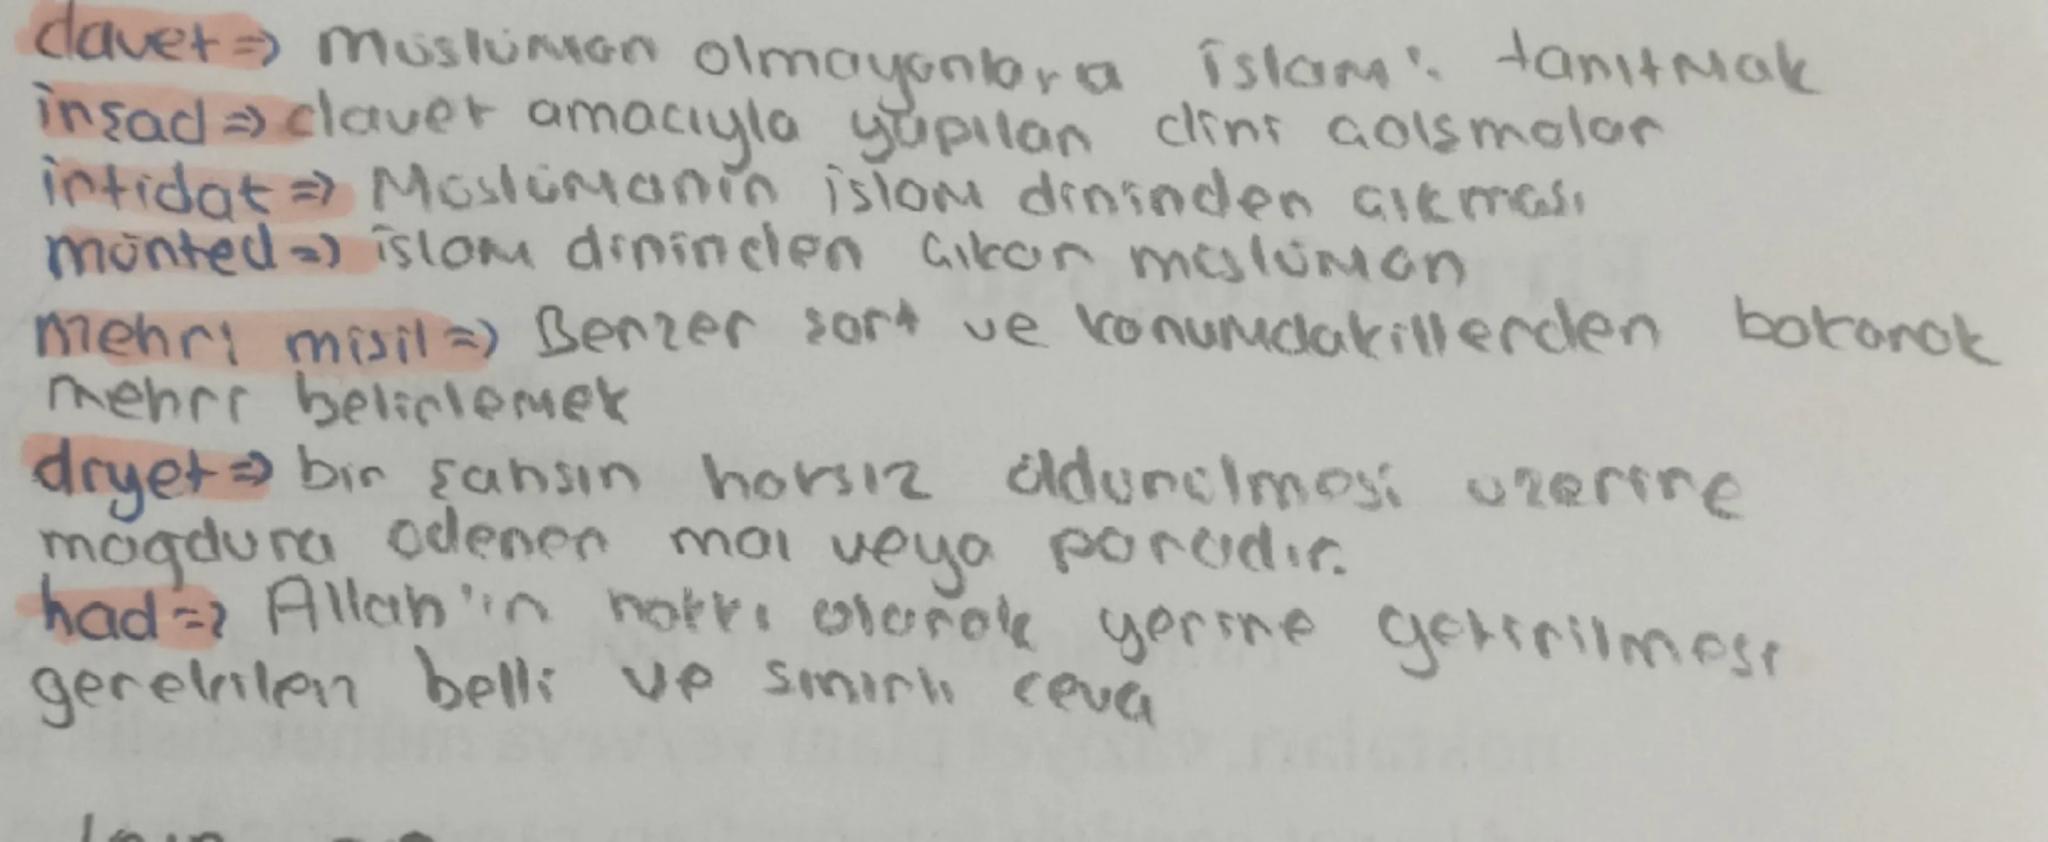 davet => müslüman olmayanlara İslam'ı tanıtmak
inşad => davet amacıyla yapılan dini çalşmalar
irtidat => Müslümanın islam dininden çıkması
mürted => islam dininden çıkan müslüman
mehri misil => Benzer şart ve konumdakillerden bakarak
mehri belirlemek
diyet => bir şahsın haksız öldürülmesi üzerine
mağdura ödenen mal veya paradır.
had => Allah'ın hakkı olarak yerine getirilmesi
gerekilen belli ve sınırlı ceva